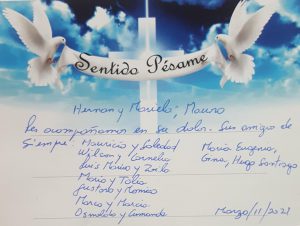 Sentido Pésame
Hernan y Mariela; Mauro
Les acompañamos en su dolor. Sus amigos de
Siempre: Mauricio y Soledad
María Eugenia,
Wilson y Cornelio
Gina, Hugo Santiago
Luis Mario y
Mario y Talia
Gustavo y Monica
Marco y Marcia
Osmaldo y
Marzo/11/2021